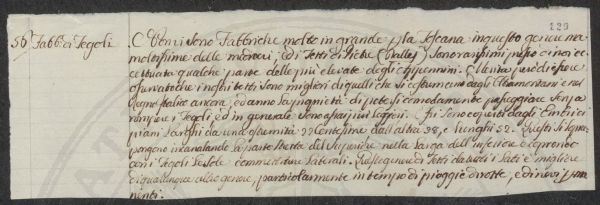 129
56 Fabb.e di Tegoli. Non vi sono Fabbriche molto in grande p. la Toscana in questo genere ma
moltissime delle minori, i Tetti di Pietre (Galles) sono rarissimi presso di noi ec-
cettuata qualche parte delle più elevate degli Appennini. Merita però di essere
osservato che i nostri tetti sono migliori di quelli che si costumano dagli Oltramontani e nel
Regno Italico ancora, ed anno la proprietà di potersi comodamente passeggiare senza
rompere i Tegoli, ed in generale sono assai più leggeri. Essi sono coperti dagli Embrici
piani larghi da una estremità 22 Centesime dall'altra 28, e lunghi 52. Questi si sovra-
pongono incanalando la parte stretta del Superiore nella larga dell'inferiore e coprono
con i Tegoli le sole commettiture laterali. Questo genere di Tetti da tutti i lati è migliore
di qualunque altro genere, particolarmente in tempo di piogge dirotte, e di nevi perma-
nenti.